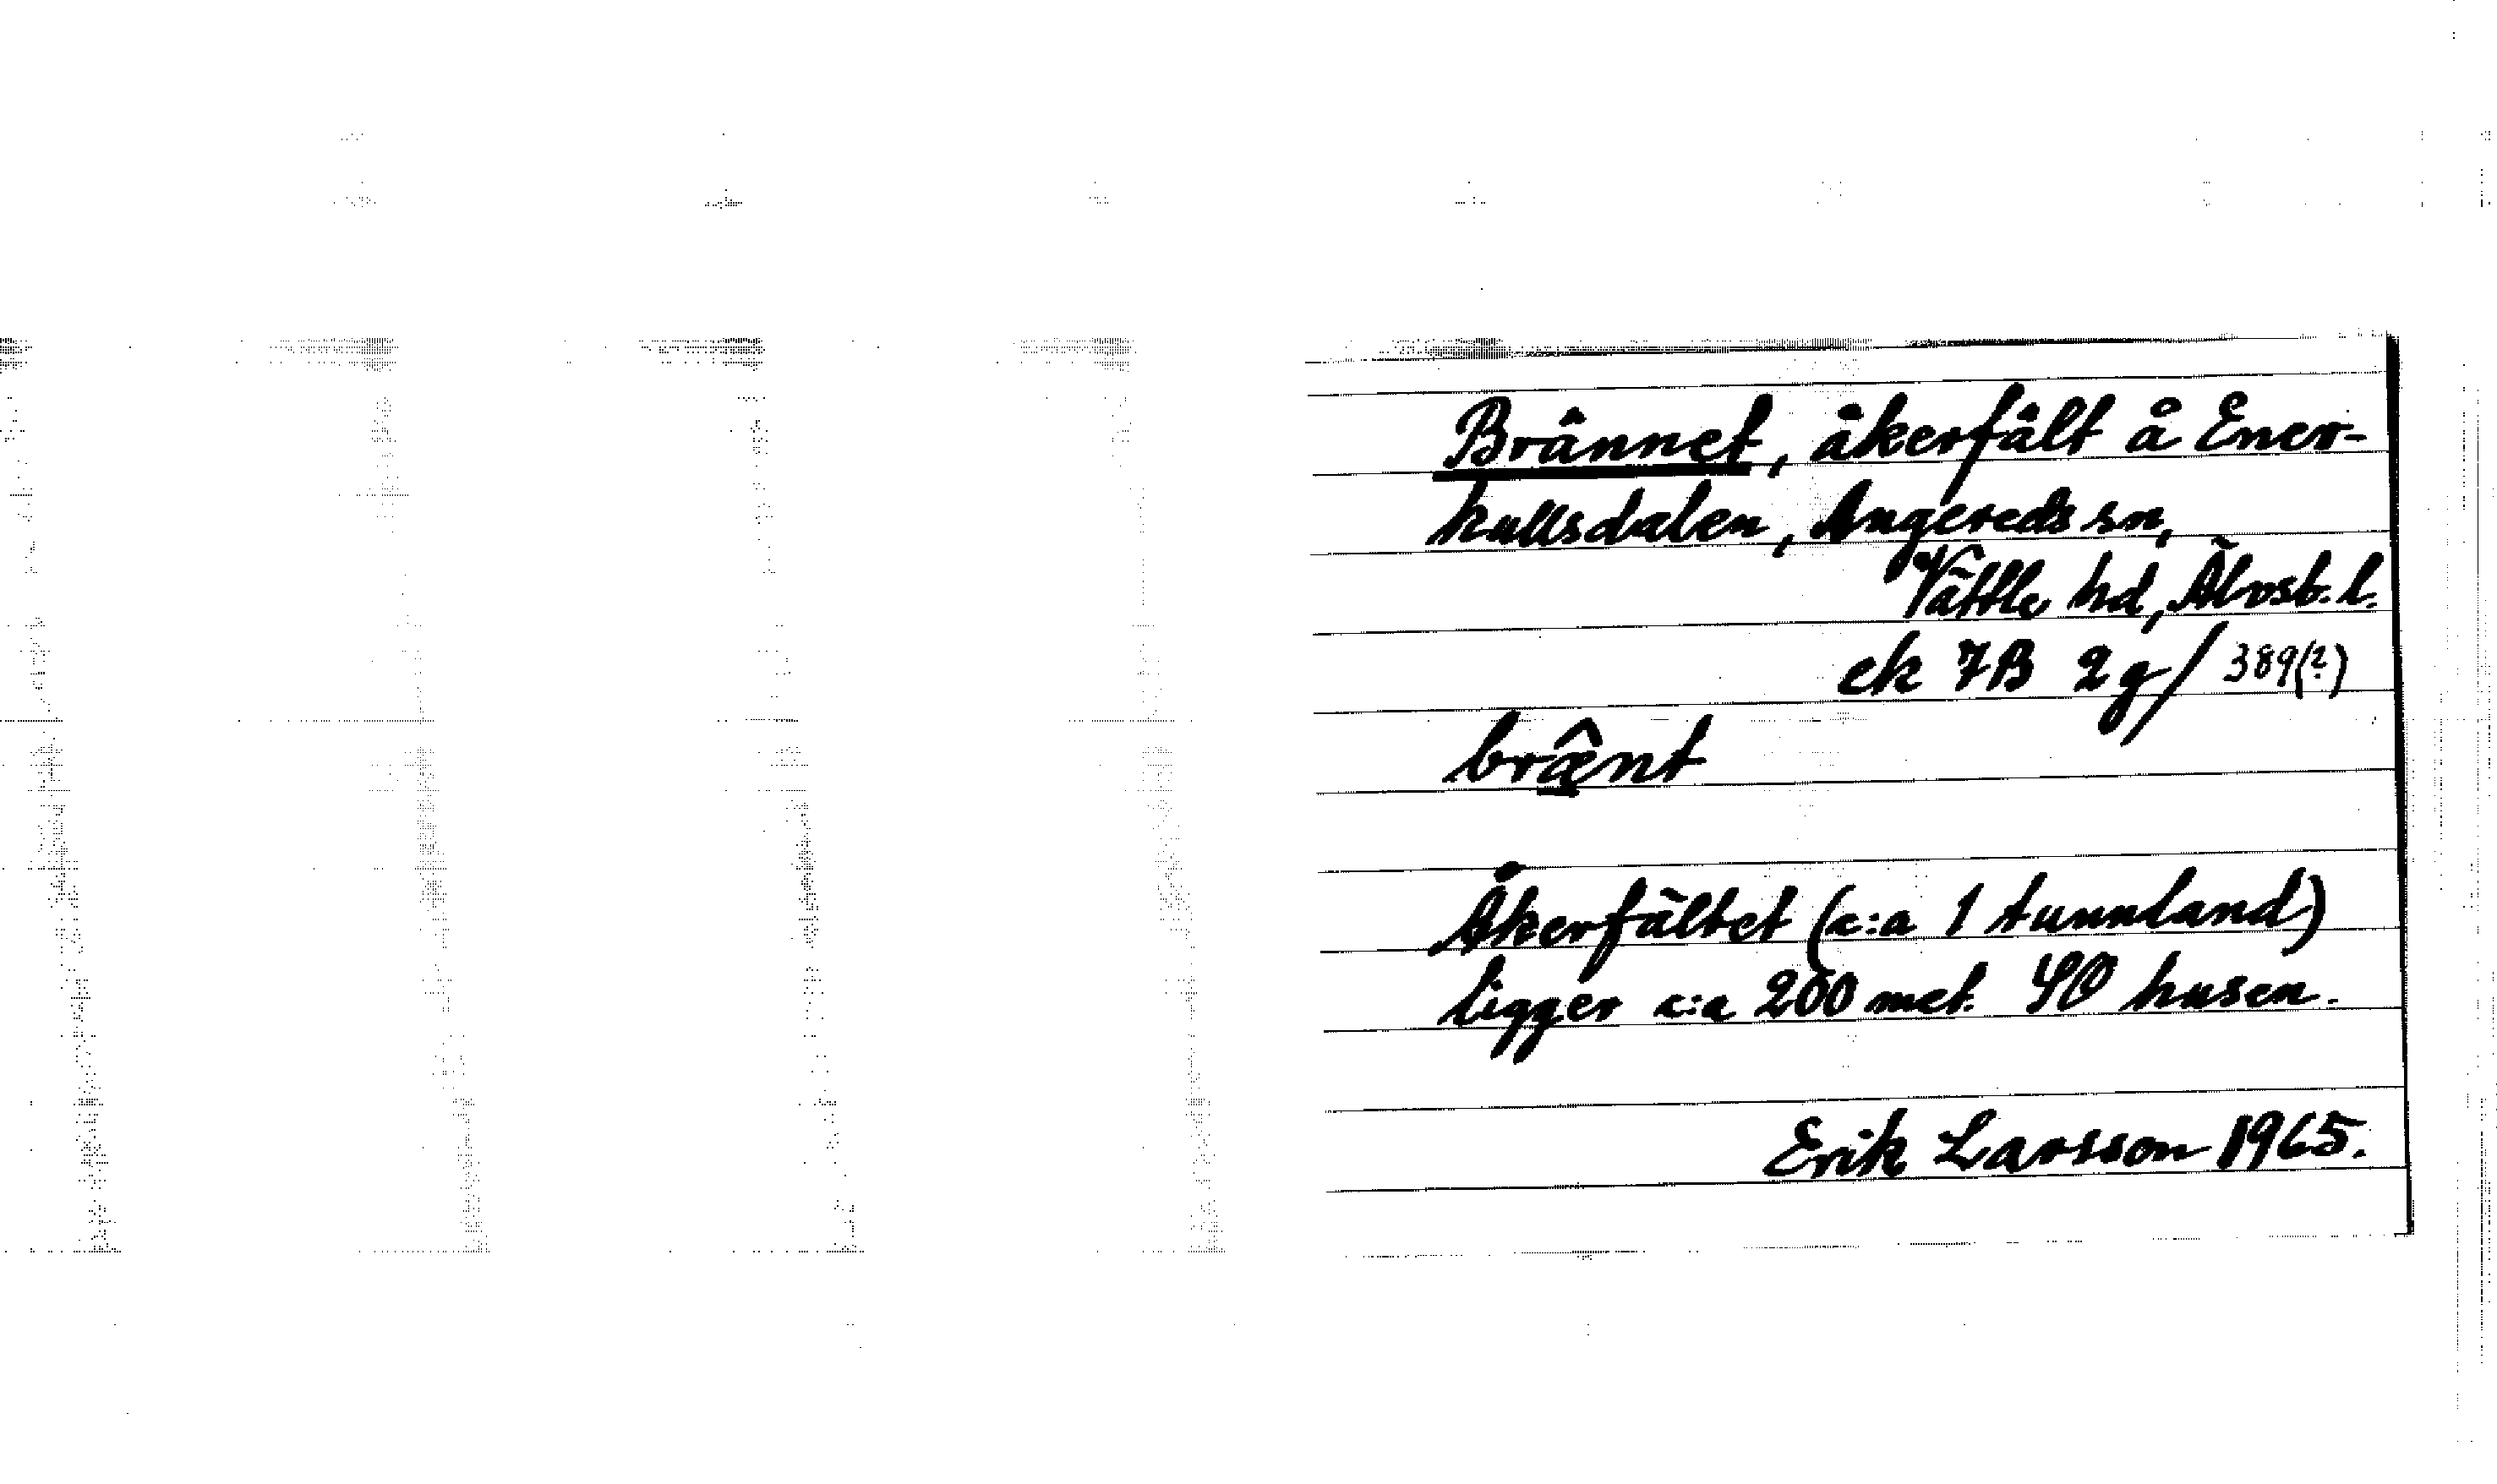 Brännet, åkerfält å Ener-
kullsdalen, Angereds sn,
Vättle hd, Älvsb. l.
ek 7B 2g/389(?)
bræ̂nt
Åkerfältet (c:a 1 tunnland)
ligger c:a 200 met. SO husen.
Erik Larsson 1965.